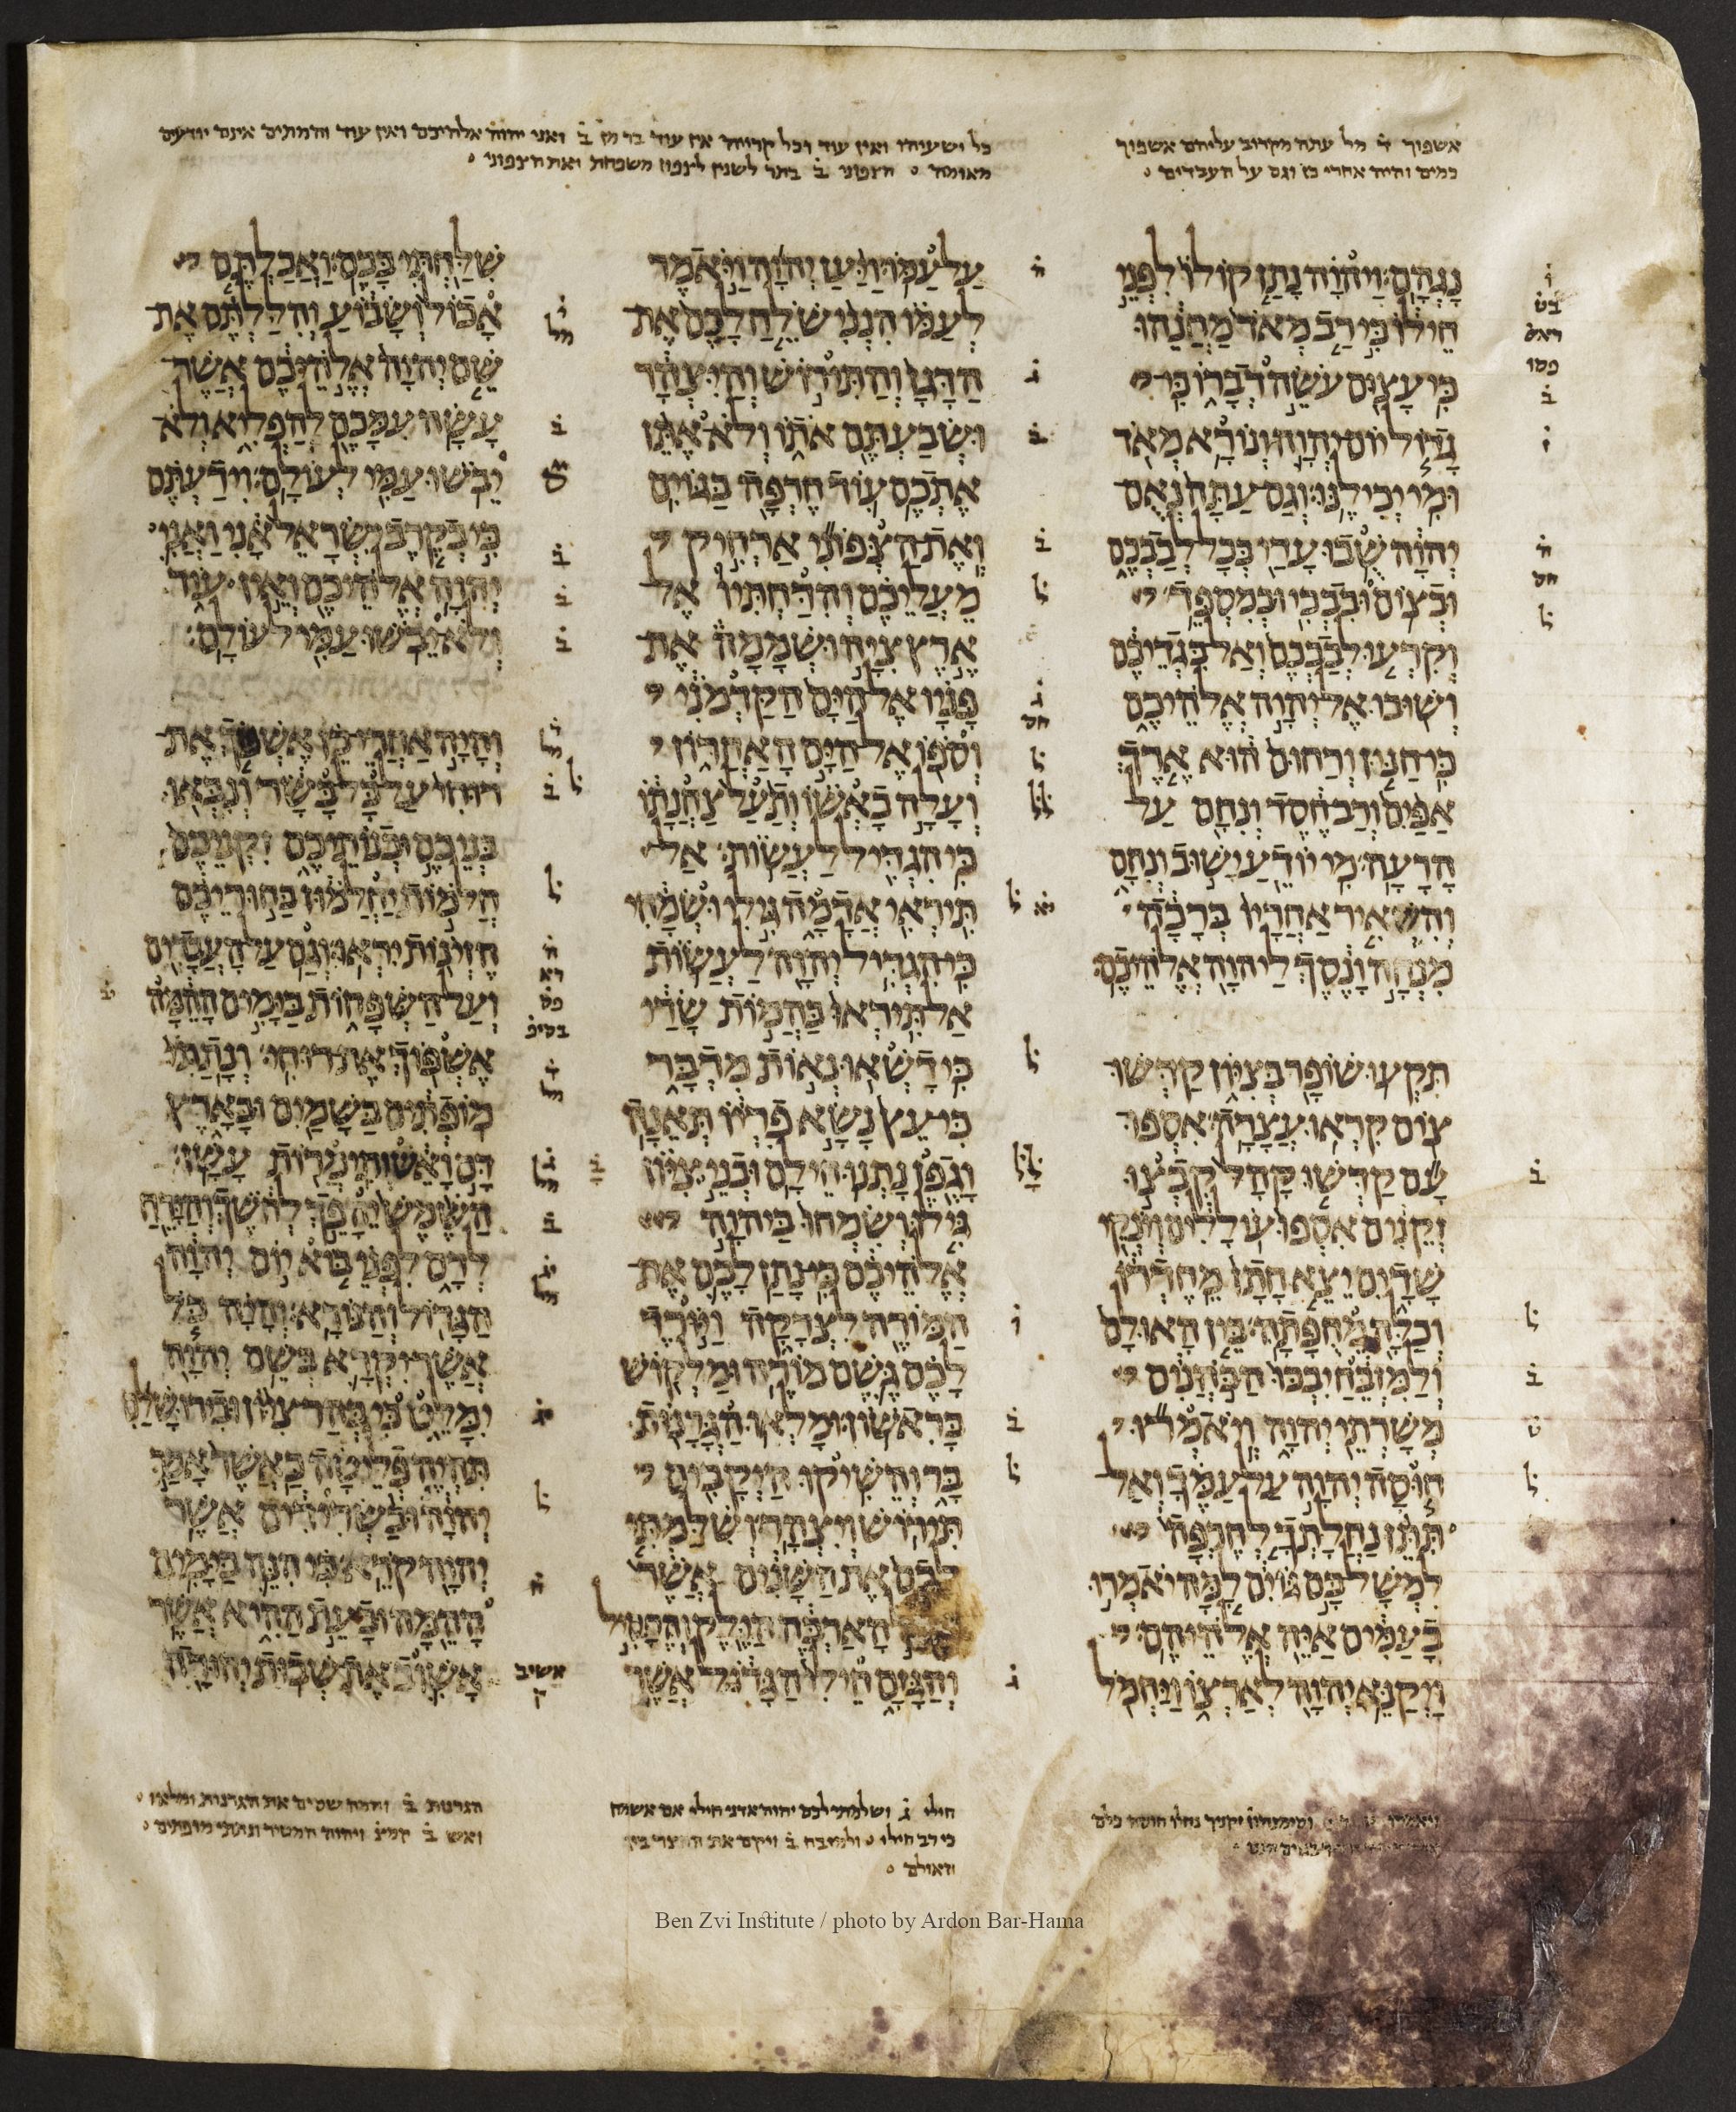 אשפוך ד מל עתה מקרוב עליהם אשפוך
כמים והיה אחרי כן וגם על העבדים
כל ישעיהו ואין עוד וכל קרויה אין עוד בר מן ב ואני יהוה אלהיכם ואין עוד והמתים אינם יודעים
מאומה הצפוני ב בתר לשנין לצפון משפחת ואת הצפוני
נגהם׃ ויהוה נתן קולו לפני
חילו כי רב מאד מחנהו
כי עצום עשה דברו כי
גדול יום יהוה ונורא מאד
ומי יכילנו׃ וגם עתה נאם
יהוה שבו עדי בכל לבבכם
ובצום ובבכי ובמספד׃
וקרעו לבבכם ואל בגדיכם
ושובו אל יהוה אלהיכם
כי חנון ורחום הוא ארך
אפים ורב חסד ונחם על
הרעה׃ מי יודע ישוב ונחם
והשאיר אחריו ברכה
מנחה ונסך ליהוה אלהיכם׃
תקעו שופר בציון קדשו
צום קראו עצרה׃ אספו
עם קדשו קהל קבצו
זקנים אספו עוללים וינקי
שדים יצא חתן מחדרו
וכלה מחפתה׃ בין האולם
ולמזבח יבכו הכהנים
משרתי יהוה ויאמרו
חוסה יהוה על עמך ואל
תתן נחלתך לחרפה
למשל בם גוים למה יאמרו
בעמים איה אלהיהם׃
ויקנא יהוה לארצו ויחמל
על עמו׃ ויען יהוה ויאמר
לעמו הנני שלח לכם את
הדגן והתירוש והיצהר
ושבעתם אתו ולא אתן
אתכם עוד חרפה בגוים׃
ואת הצפוני ארחיק
מעליכם והדחתיו אל
ארץ ציה ושממה את
פניו אל הים הקדמני
וספו אל הים האחרון
ועלה באשו ותעל צחנתו
כי הגדיל לעשות׃ אל
תיראי אדמה גילי ושמחי
כי הגדיל יהוה לעשות׃
אל תיראו בהמות שדי
כי דשאו נאות מדבר
כי עץ נשא פריו תאנה
וגפן נתנו חילם׃ ובני ציון
גילו ושמחו ביהוה
אלהיכם כי נתן לכם את
המורה לצדקה ויורד
לכם גשם מורה ומלקוש
בראשון׃ ומלאו הגרנות
בר והשיקו היקבים
תירוש ויצהר׃ ושלמתי
לכם את השנים אשר
הארבה הילק והחסיל
והגזם חילי הגדול אשר
שלחתי בכם׃ ואכלתם
אכול ושבוע והללתם את
שם יהוה אלהיכם אשר
עשה עמכם להפליא ולא
יבשו עמי לעולם׃ וידעתם
כי בקרב ישראל אני ואני
יהוה אלהיכם ואין עוד
ולא יבשו עמי לעולם׃
והיה אחרי כן אשפוך את
רוחי על כל בשר ונבאו
בניכם ובנותיכם זקניכם
חלמות יחלמון בחוריכם
חזינות יראו׃ וגם על העבדים
ועל השפחות בימים ההמה
אשפוך את רוחי׃ ונתתי
מופתים בשמים ובארץ
דם ואש ותימרות עשן׃
השמש יהפך לחשך והירח
לדם לפני בוא יום יהוה
הגדול והנורא׃ והיה כל
אשר יקרא בשם יהוה
ימלט כי בהר ציון ובירושלם
תהיה פליטה כאשר אמר
יהוה ובשרידים אשר
יהוה קרא׃ כי הנה בימים
ההמה ובעת ההיא אשר
אשוב את שבות יהודה
אשיב
ק
חילי ג ושלמתי לכם יהוה אדני חילי אם אשמח
כי רב חילי ולמזבח ב ויקם את החצר בין
האולם
הגרנות ב והמה שסים את הגרנות ומלאו
ואש ב קמיצ ויהוה המטיר ונתתי מופתים
Ben Zvi Institute / photo by Ardon Bar-Hama